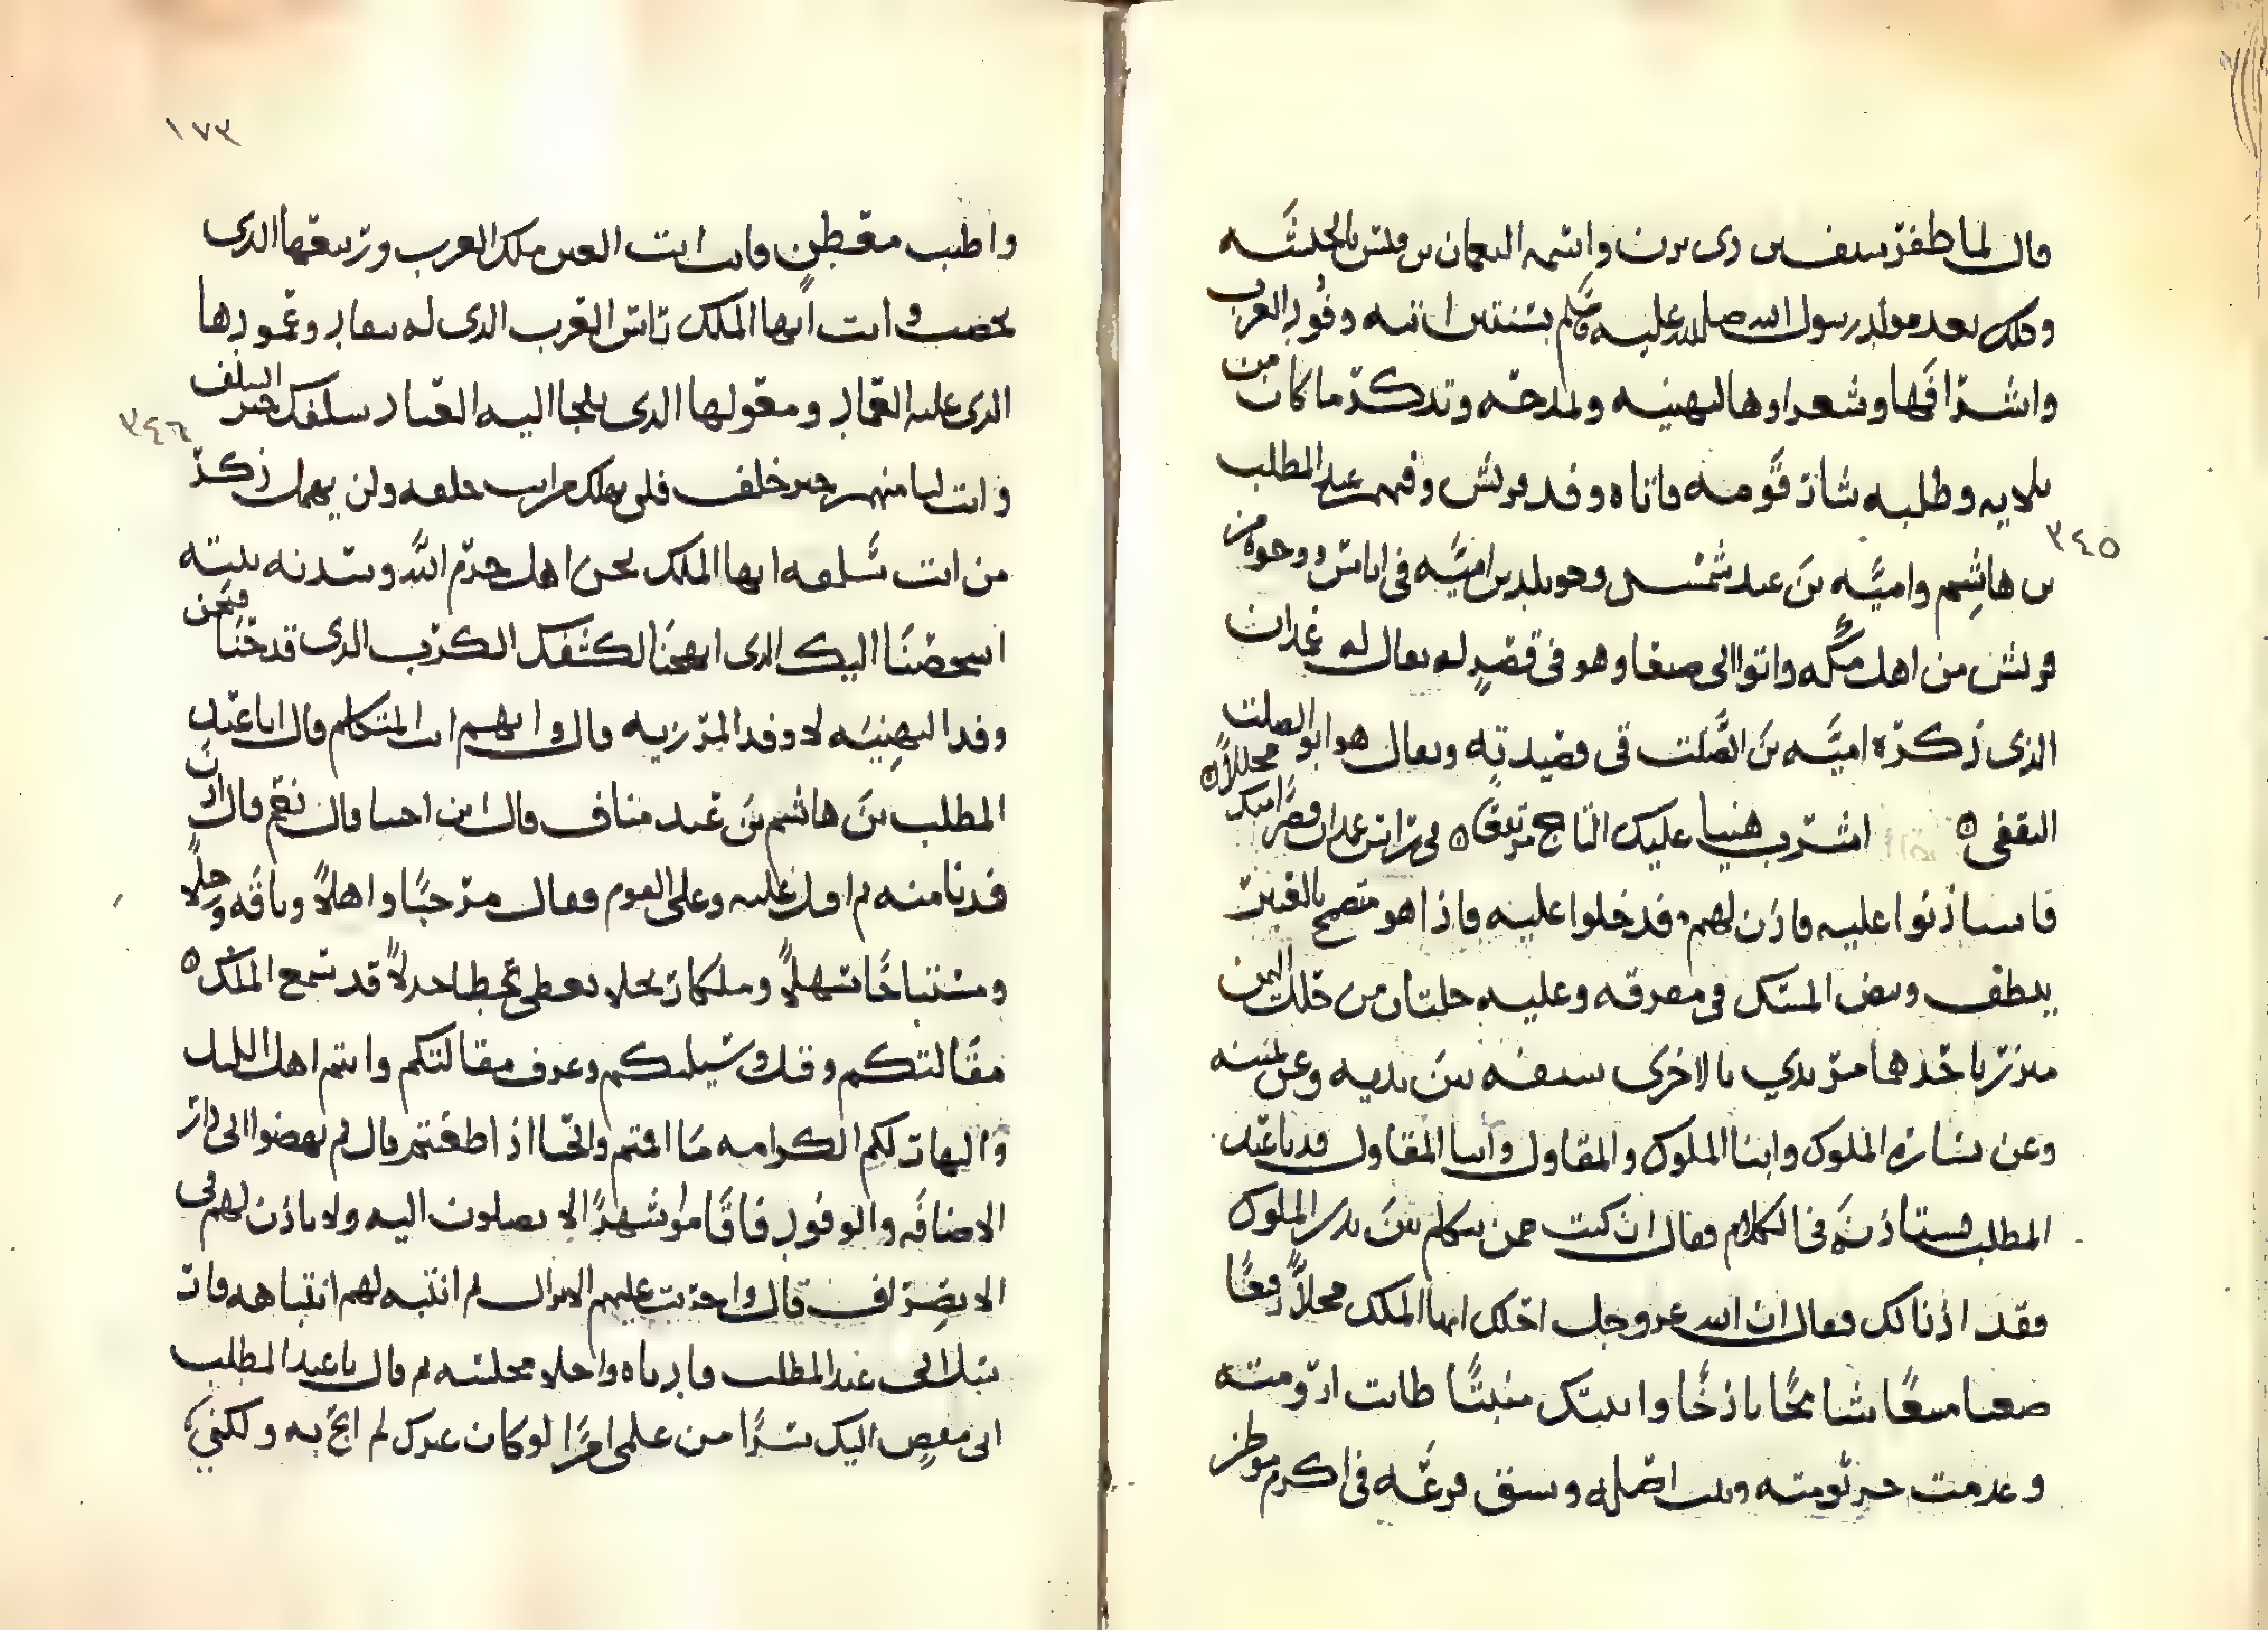 قال لما ظفر سيف بن ذي يزن واسمه النعمان بن قيس بالحبشه
وذلك بعد مولد رسول الله صلى الله عليه وسلم بسنتين اتته وفود العرب
واشرافها وشعراوها لتهنيه ولمدحه وتذكر ما كان من
بلايه وطلبه بثار قومه فاتاه وفد قريش وفيهم عبد المطلب
٣٤٥
بن هاشم واميه بن عبد شمس وخويلد بن اميه في اناس من وجوه
قريش من اهل مكه واتوا الى صنعا وهو في قصر له يقال له غمدان
الذي ذكره اميه بن الصلت في قصيدته ويقال هو ابو الصلت
الثقفي اشرب هنيا عليك التاج مرتفعا في راس غمدان قصرا منك محلالا
فاستاذنوا عليه فاذن لهم فدخلوا عليه فاذا هو متضمخ بالعنبر
ينطف وبيض المسك في مفرقه وعليه حلتان من حلل اليمن
متزر باحدهما مرتدي بالاخرى سيفه بين يديه وعن يمينه
وعن يساره الملوك وابنا الملوك والمقاول وابنا المقاول فدنا عبد
المطلب فستاذنه في الكلام فقال ان كنت ممن يتكلم بين يدي الملوك
فقد اذنا لك فقال ان الله عز وجل احلك ايها الملك محلا رفيعا
صعبا منيعا شامخا باذخا وانبتك منبتا طابت ارومته
وعذبت جرثومته وثبت اصله وبسق فرعه في اكرم موطن
١٧٣
واطيب معطن فانت ابيت اللعن ملك العرب وربيعها الذي
يخصب وانت ايها الملك راس العرب الذي له ينقاد وعمودها
الذي عليه العماد ومعقولها الذي يلجا اليه العباد سلفك خير السلف
٣٤٦
وانت لنا منهم خير خلف فلن يهلك من انت خلفه ولن يخمل ذكر
من انت سلفه ايها الملك نحن اهل حرم الله وسدنه بيته
اشخصنا اليك الذي ابهجنا لكشفك الكرب الذي فدحنا فنحن
وفد التهنيه لا وفد المرزيه قال وايهم انت المتكلم قال انا عبد
المطلب بن هاشم بن عبد مناف قال ابن اختنا قال نعم قال ادن
فدنا منه ثم اقبل عليه وعلى القوم فقال مرحبا واهلا وناقه ورحلا
ومستناخا سهلا وملكا ربحلا يعطي عطا جزلا قد سمع الملك
مقالتكم وقبل وسيلتكم وعرف مقالتكم وانتم اهل الليل
والنهار لكم الكرامه ما اقمتم والحبا اذا ظعنتم قال ثم نهضوا الى دار
الاضافه والوفود فاقاموا شهرا لا يصلون اليه ولا ياذن لهم في
الانصراف قال واجريت عليهم الانزال ثم انتبه لهم انتباهه فار
سل الى عبد المطلب فادناه واخلا مجلسه ثم قال يا عبد المطلب
اني مفض اليك سرا من علمي امرا لو كان غيرك لم ابح به ولكني